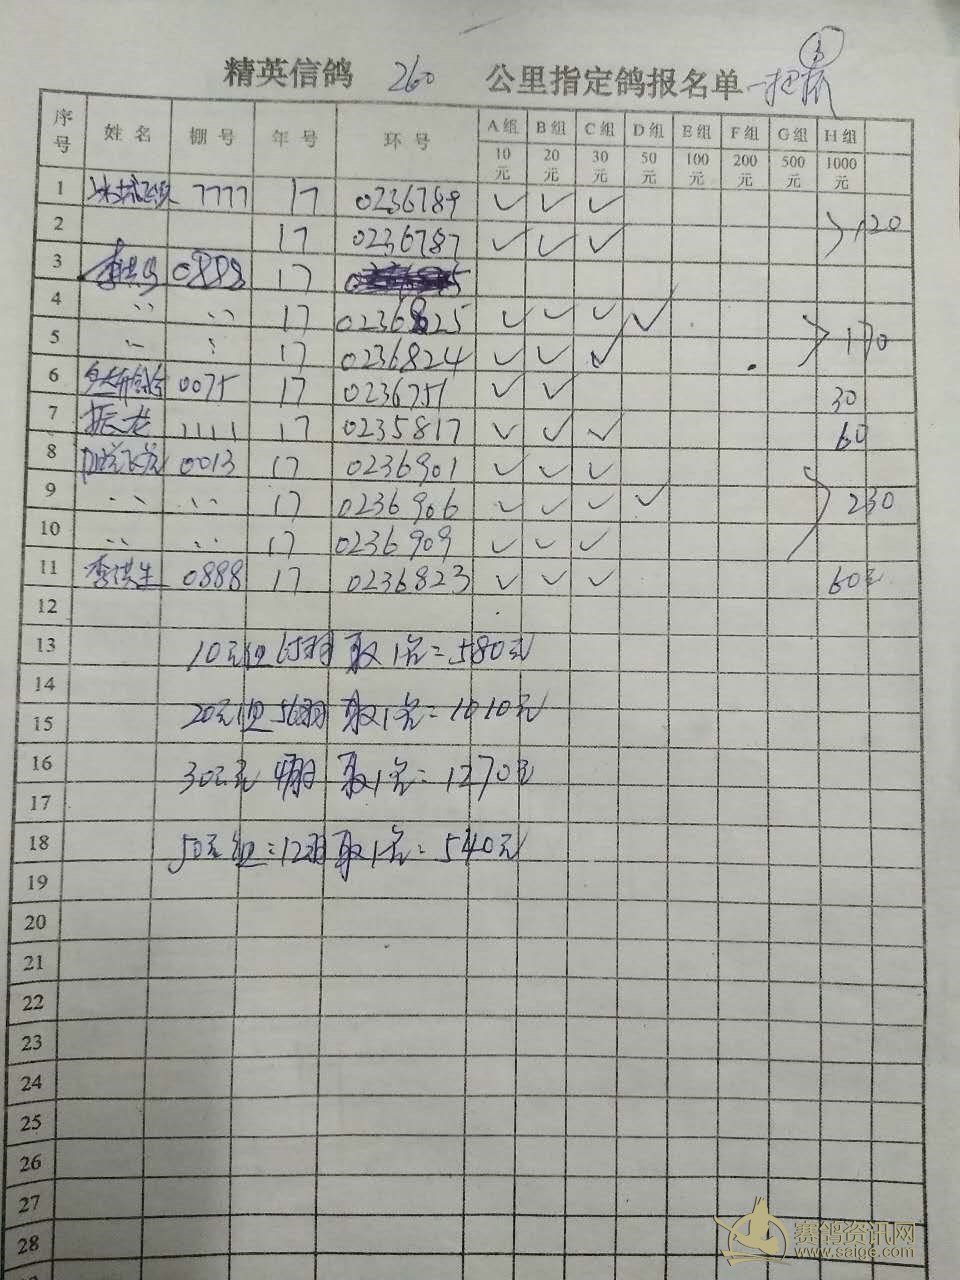 3
精英信鸽 260 公里指定鸽报名单 一把抓
序号 姓名 棚号 年号 环号 A组 B组 C组 D组 E组 F组 G组 H组
10元 20元 30元 50元 100元 200元 500元 1000元
1 7777 17 0236789 ✓ ✓ ✓
2 17 0236787 ✓ ✓ ✓ 120
3 0888 17
4 〃 〃 17 0236825 ✓ ✓ ✓ ✓
5 〃 〃 17 0236824 ✓ ✓ ✓ 170
6 0075 17 0236751 ✓ ✓ 30
7 振龙 1111 17 0235817 ✓ ✓ ✓ 60
8 0013 17 0236901 ✓ ✓ ✓
9 〃 〃 17 0236906 ✓ ✓ ✓ ✓ 230
10 〃 〃 17 0236909 ✓ ✓ ✓
11 李洪生 0888 17 0236823 ✓ ✓ ✓ 60元
12
13 10元组65羽 取1名=580元
14
15 20元组56羽 取1名=1010元
16 30元 取1名=1270元
17
18 50元组:12羽 取1名=540元
19
20
21
22
23
24
25
26
27
28
赛鸽资讯网
www.saige.com